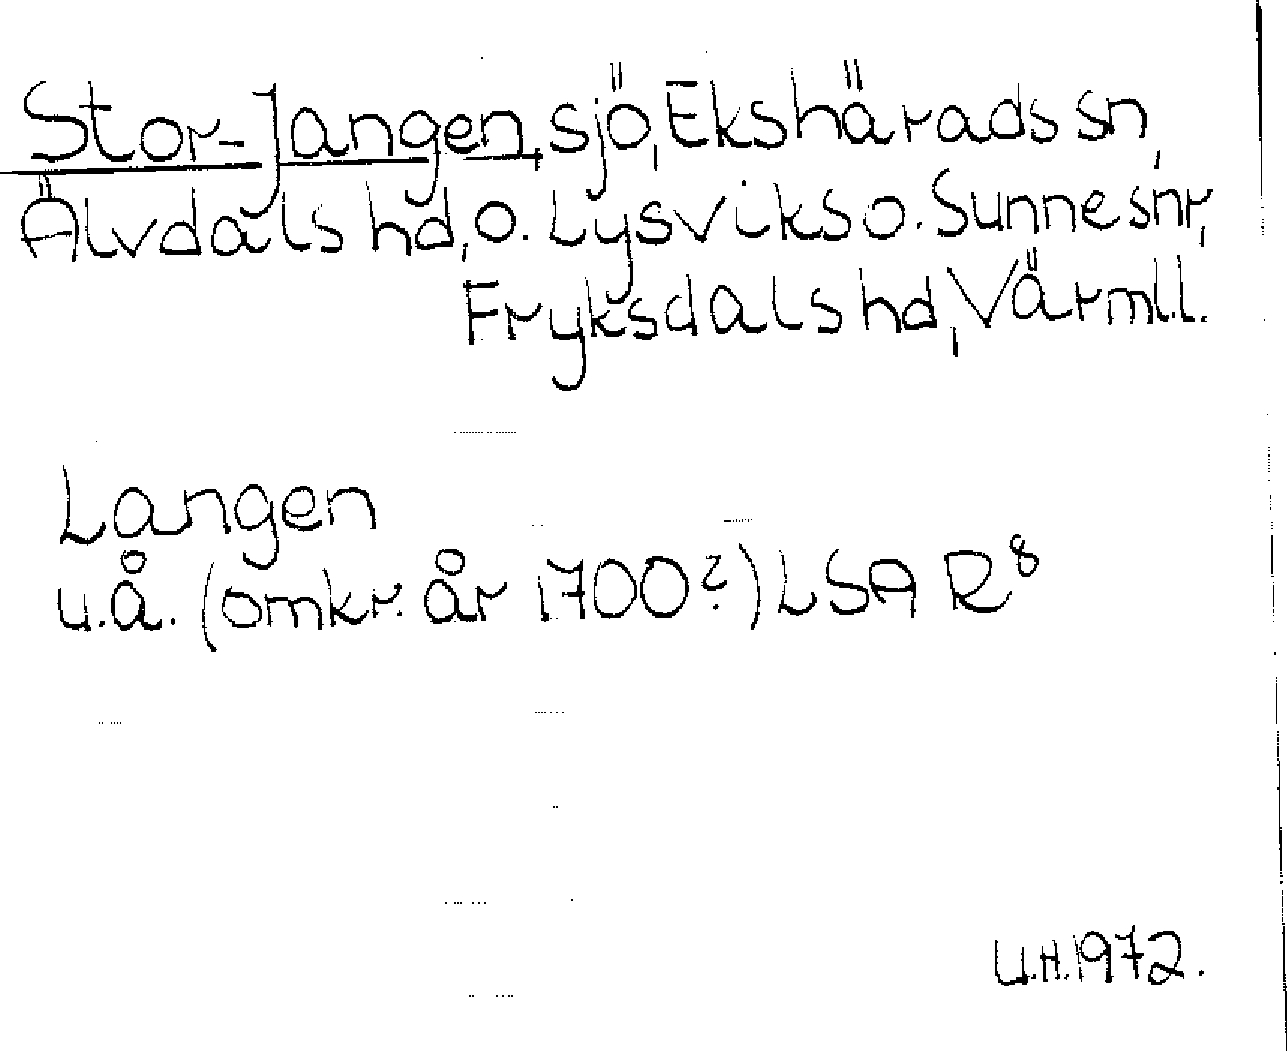 Stor-Jangen, sjö, Ekshärads sn,
Älvdals hd, o. Lysviks o. Sunne snr,
Fryksdals hd, Värml.l.
Langen
u.å. (omkr. år 1700?) LSA R⁸
U.H. 1972.